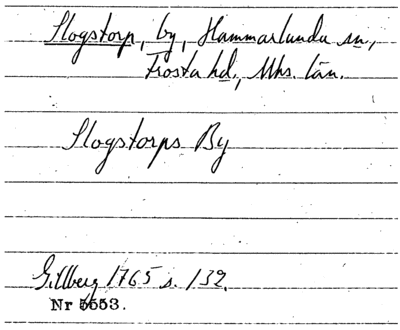 Slogstorp, by, Hammarlunda sn,
Frosta hd., Mhs. län.
Slogstorps By
Gillberg 1765 s. 132.
Nr 5553.